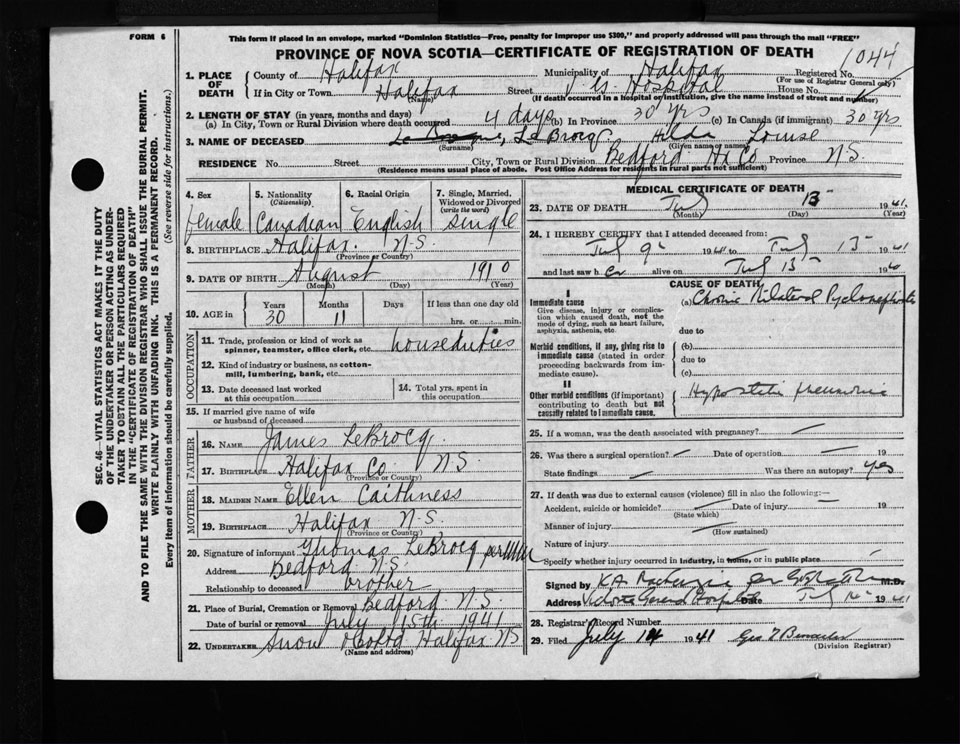 FORM 6
This form if placed in an envelope, marked "Dominion Statistics—Free, penalty for improper use $300," and properly addressed will pass through the mail "FREE"
PROVINCE OF NOVA SCOTIA—CERTIFICATE OF REGISTRATION OF DEATH
1044
1. PLACE OF DEATH
County of Halifax Municipality of Halifax Registered No.
(For use of Registrar General only)
If in City or Town Halifax Street V. G. Hospital House No.
(Name) (If death occurred in a hospital or institution, give the name instead of street and number)
2. LENGTH OF STAY (in years, months and days)
(a) In City, Town or Rural Division where death occurred 4 days (b) In Province 30 yrs (c) In Canada (if immigrant) 30 yrs
3. NAME OF DECEASED LeBrocq Hilda Louise
(Surname) (Given name or names)
RESIDENCE No. Street City, Town or Rural Division Bedford Hx Co Province N.S.
(Residence means usual place of abode. Post Office Address for residents in rural parts not sufficient)
4. Sex female
5. Nationality (Citizenship) Canadian
6. Racial Origin English
7. Single, Married, Widowed or Divorced (write the word) single
8. BIRTHPLACE Halifax. N.S.
(Province or Country)
9. DATE OF BIRTH August 1910
(Month) (Day) (Year)
10. AGE in Years 30 Months 11 Days If less than one day old hrs. or min.
OCCUPATION
11. Trade, profession or kind of work as spinner, teamster, office clerk, etc. houseduties
12. Kind of industry or business, as cotton-mill, lumbering, bank, etc.
13. Date deceased last worked at this occupation
14. Total yrs. spent in this occupation
15. If married give name of wife or husband of deceased
FATHER
16. NAME James LeBrocq
17. BIRTHPLACE Halifax Co. N.S.
(Province or Country)
MOTHER
18. MAIDEN NAME Ellen Caithness
19. BIRTHPLACE Halifax N.S.
(Province or Country)
20. Signature of informant Thomas LeBrocq per
Address Bedford N.S.
Relationship to deceased brother
21. Place of Burial, Cremation or Removal Bedford N.S.
Date of burial or removal July 15th 1941
22. UNDERTAKER Snow & Co Ltd Halifax NS
(Name and address)
MEDICAL CERTIFICATE OF DEATH
23. DATE OF DEATH July 13 1941.
(Month) (Day) (Year)
24. I HEREBY CERTIFY that I attended deceased from:
July 9 1941 to July 13 1941
and last saw her alive on July 13 19
CAUSE OF DEATH
I
Immediate cause (a) Chronic Bilateral Pyelonephritis
Give disease, injury or complication which caused death, not the mode of dying, such as heart failure, asphyxia, asthenia, etc.
due to
Morbid conditions, if any, giving rise to immediate cause (stated in order proceeding backwards from immediate cause).
(b)
due to
(c)
II
Other morbid conditions (if important) contributing to death but not causally related to immediate cause.
Hypostatic pneumonia
25. If a woman, was the death associated with pregnancy?
26. Was there a surgical operation? Date of operation 19
State findings Was there an autopsy? Yes
27. If death was due to external causes (violence) fill in also the following:—
Accident, suicide or homicide? Date of injury 19
(State which)
Manner of injury
(How sustained)
Nature of injury
Specify whether injury occurred in industry, in home, or in public place
Signed by K A MacKenzie per M.D.
Address Victoria General Hospital Date July 14 1941
28. Registrar's Record Number
29. Filed July 14 1941 Geo
(Division Registrar)
SEC. 46—VITAL STATISTICS ACT MAKES IT THE DUTY
OF THE UNDERTAKER OR PERSON ACTING AS UNDER-
TAKER TO OBTAIN ALL THE PARTICULARS REQUIRED
IN THE "CERTIFICATE OF REGISTRATION OF DEATH"
AND TO FILE THE SAME WITH THE DIVISION REGISTRAR WHO SHALL ISSUE THE BURIAL PERMIT.
WRITE PLAINLY WITH UNFADING INK. THIS IS A PERMANENT RECORD.
Every item of information should be carefully supplied. (See reverse side for instructions.)